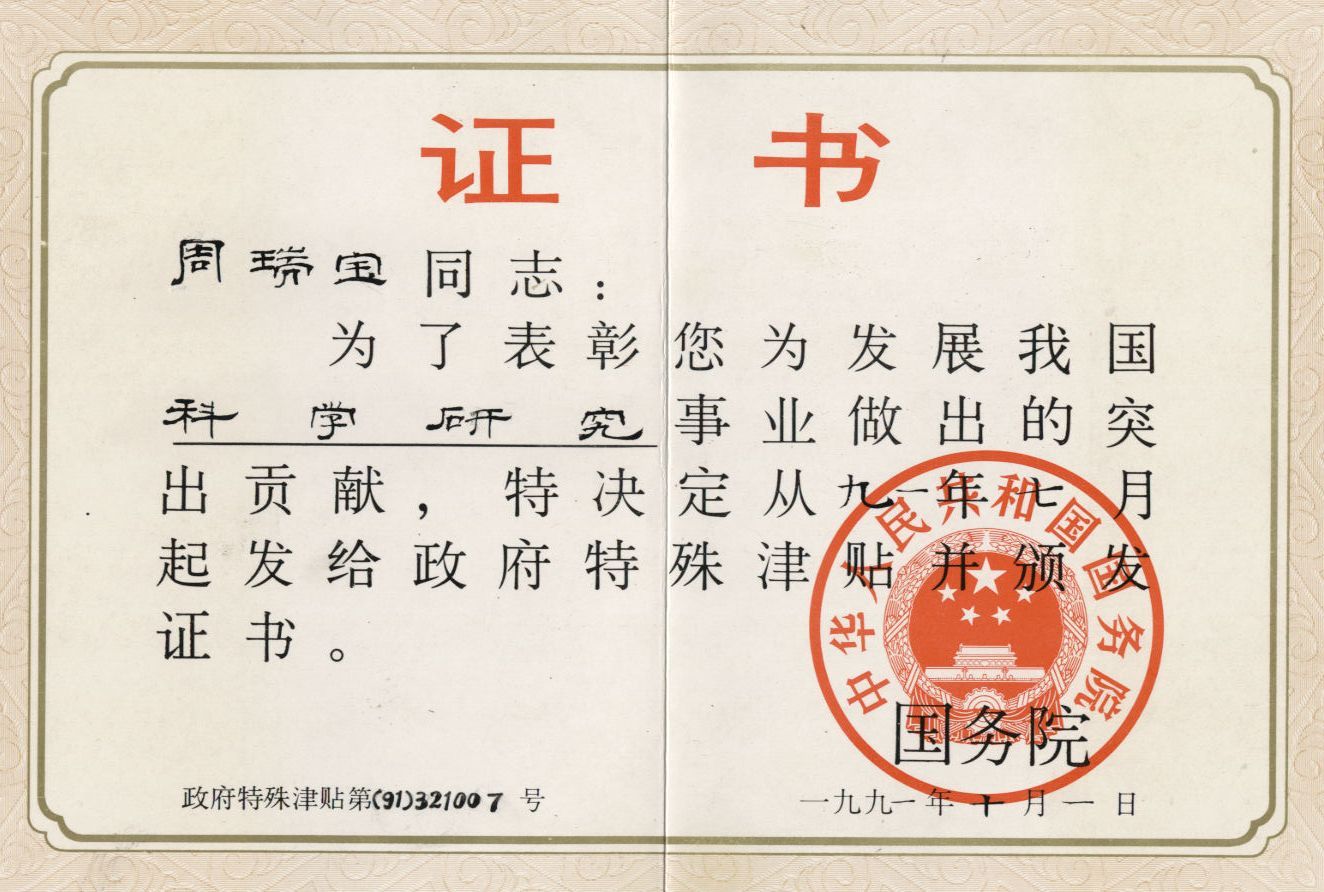 证书
周瑞宝同志：
为了表彰您为发展我国
科学研究事业做出的突
出贡献，特决定从九一年七月
起发给政府特殊津贴并颁发
证书。
中华人民共和国国务院
国务院
政府特殊津贴第(91)321007号
一九九一年十月一日